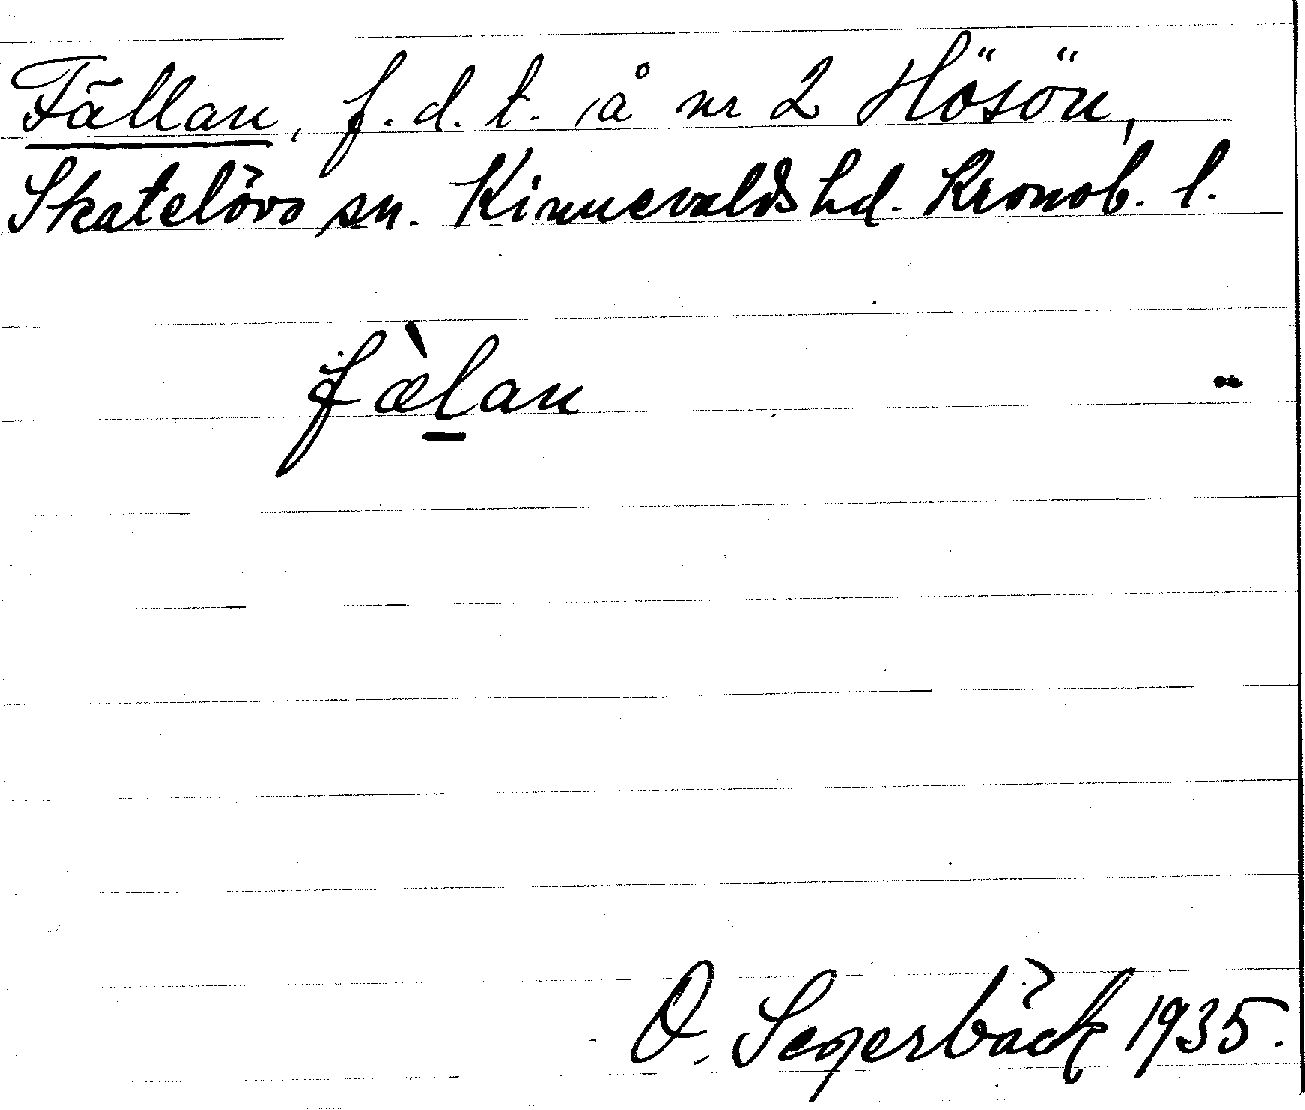 Fällan, f.d.t. å nr 2 Hösön,
Skatelövs sn. Kinnevalds hd. Kronob. l.
fæ̀l̲an
O. Segerbäck 1935.